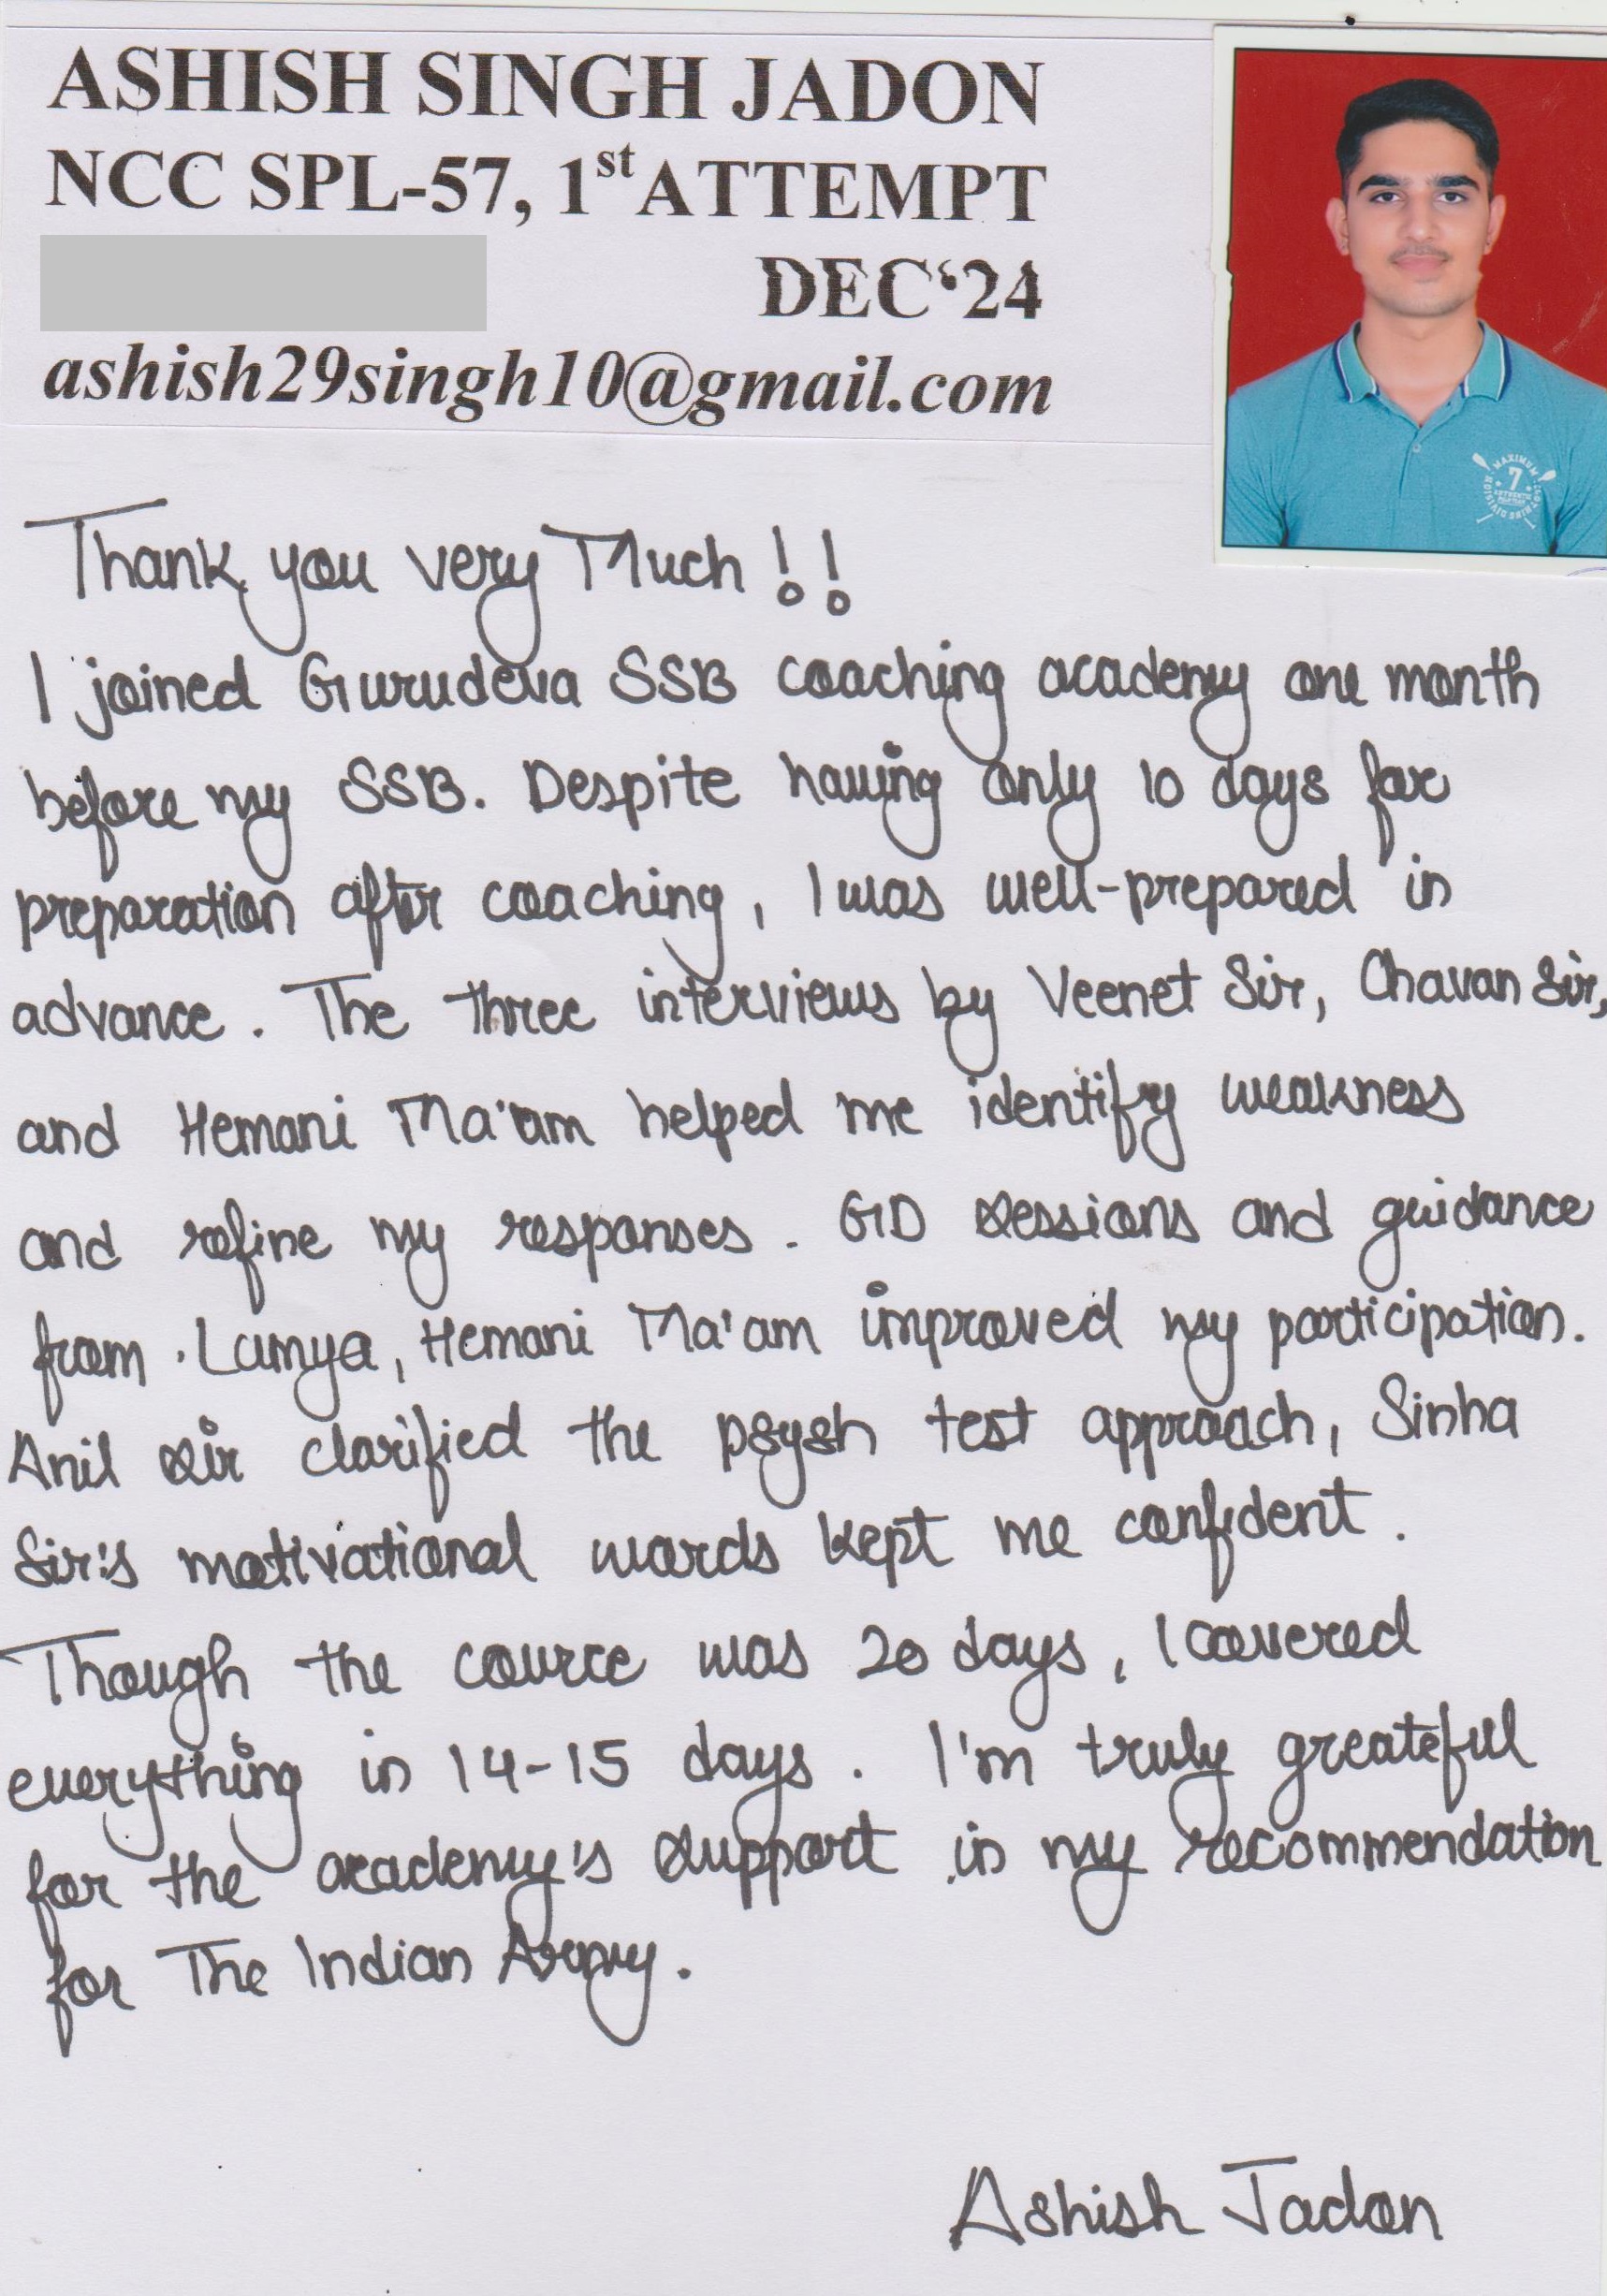 ASHISH SINGH JADON
NCC SPL-57, 1st ATTEMPT
DEC‘24
ashish29singh10@gmail.com
MAXIMUM
7
AUTHENTIC
CLOTHING DIVISION
Thank you very Much !!
I joined Gurudeva SSB coaching academy one month
before my SSB. Despite having only 10 days for
preparation after coaching, I was well-prepared in
advance. The three interviews by Veenet Sir, Chavan Sir,
and Hemani Ma'am helped me identify weakness
and refine my responses. GD sessions and guidance
from Lamya, Hemani Ma'am improved my participation.
Anil sir clarified the psysh test approach, Sinha
Sir's motivational words kept me confident.
Though the cource was 20 days, I covered
everything in 14-15 days. I'm truly greateful
for the academy's support in my recommendation
for The Indian Army.
Ashish Jadon